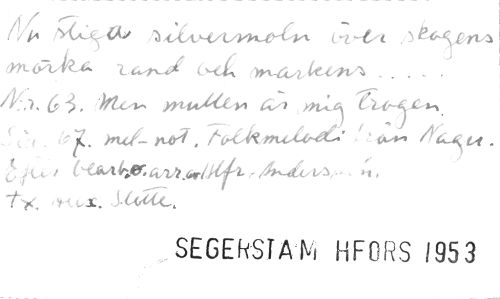 Nu stiga silvermoln över skogens
mörka rand och markens.....
Nr. 63. Men mullen är mig trogen.
67. mel-not. Folkmelodi från Nagu.
Efter bearb. o. arr. av Alfr. Anderssén.
tx. Slotte.
SEGERSTAM HFORS 1953